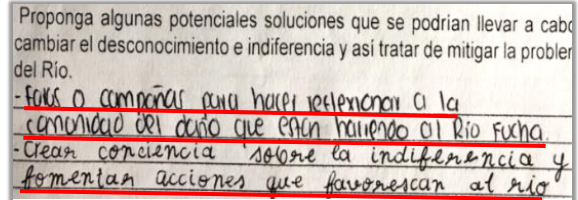 Proponga algunas potenciales soluciones que se podrian llevar a cabo
cambiar el desconocimiento e indiferencia y así tratar de mitigar la problem
del Río.
- foros o campañas para hacer reflexionar a la
comunidad del daño que estan haciendo al Río Fucha.
- Crear conciencia sobre la indiferencia y
fomentar acciones que favorescan al rio